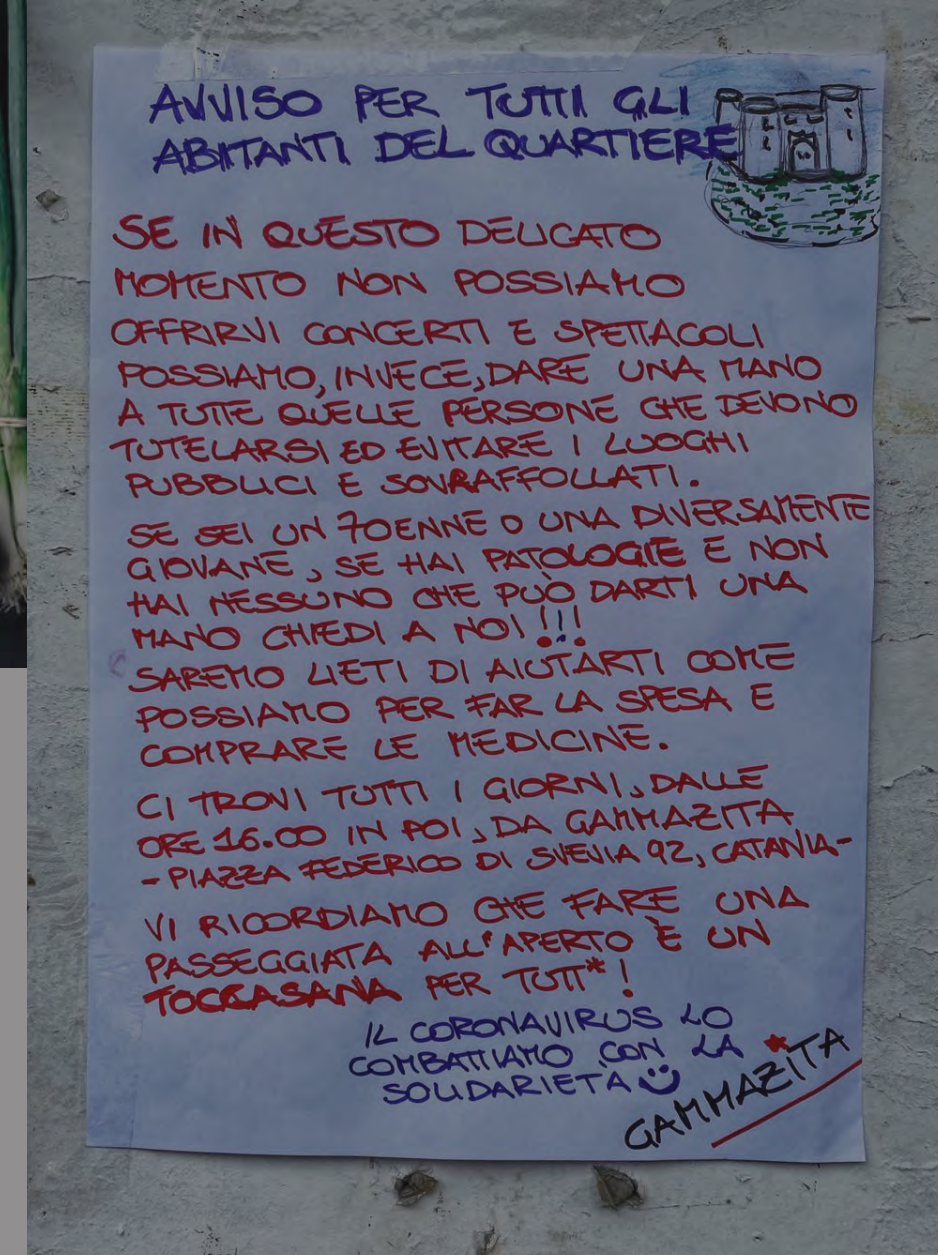 AVVISO PER TUTTI GLI
ABITANTI DEL QUARTIERE
SE IN QUESTO DELICATO
MOMENTO NON POSSIAMO
OFFRIRVI CONCERTI E SPETTACOLI
POSSIAMO, INVECE, DARE UNA MANO
A TUTTE QUELLE PERSONE CHE DEVONO
TUTELARSI ED EVITARE I LUOGHI
PUBBLICI E SOVRAFFOLLATI.
SE SEI UN 70ENNE O UNA DIVERSAMENTE
GIOVANE, SE HAI PATOLOGIE E NON
HAI NESSUNO CHE PUÒ DARTI UNA
MANO CHIEDI A NOI!!!
SAREMO LIETI DI AIUTARTI COME
POSSIAMO PER FAR LA SPESA E
COMPRARE LE MEDICINE.
CI TROVI TUTTI I GIORNI, DALLE
ORE 16.00 IN POI, DA GAMMAZITA
- PIAZZA FEDERICO DI SVEVIA 92, CATANIA -
VI RICORDIAMO CHE FARE UNA
PASSEGGIATA ALL'APERTO È UN
TOCCASANA PER TUTT*!
IL CORONAVIRUS LO
COMBATTIAMO CON LA
SOLIDARIETA
GAMMAZITA